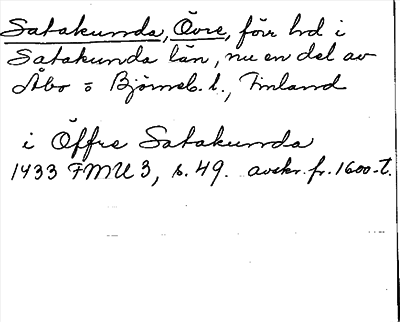 Satakunda, Övre, förr hd i
Satakunda län, nu en del av
Åbo o Björneb. l., Finland
i Öffre Satakunda
1433 FMU 3, s. 49. avskr. fr. 1600-t.